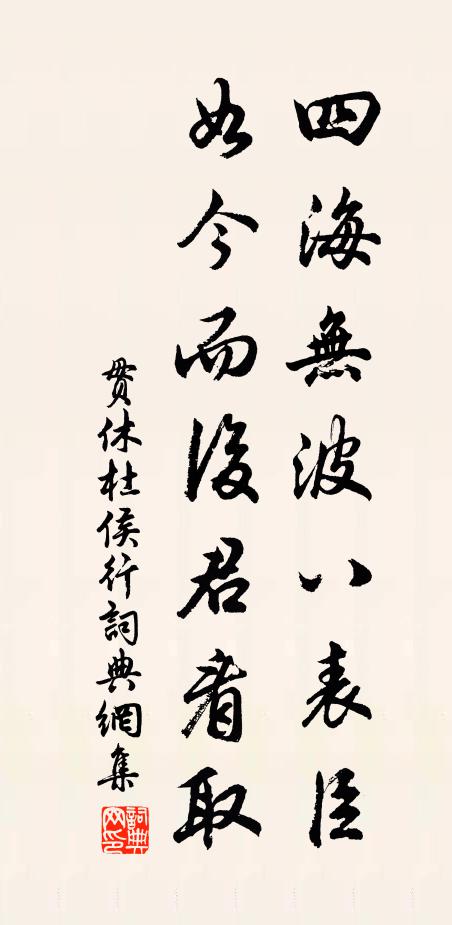 四海無波八表臣
如今而後君看取
貫休杜侯行詞典網集
詞典網印